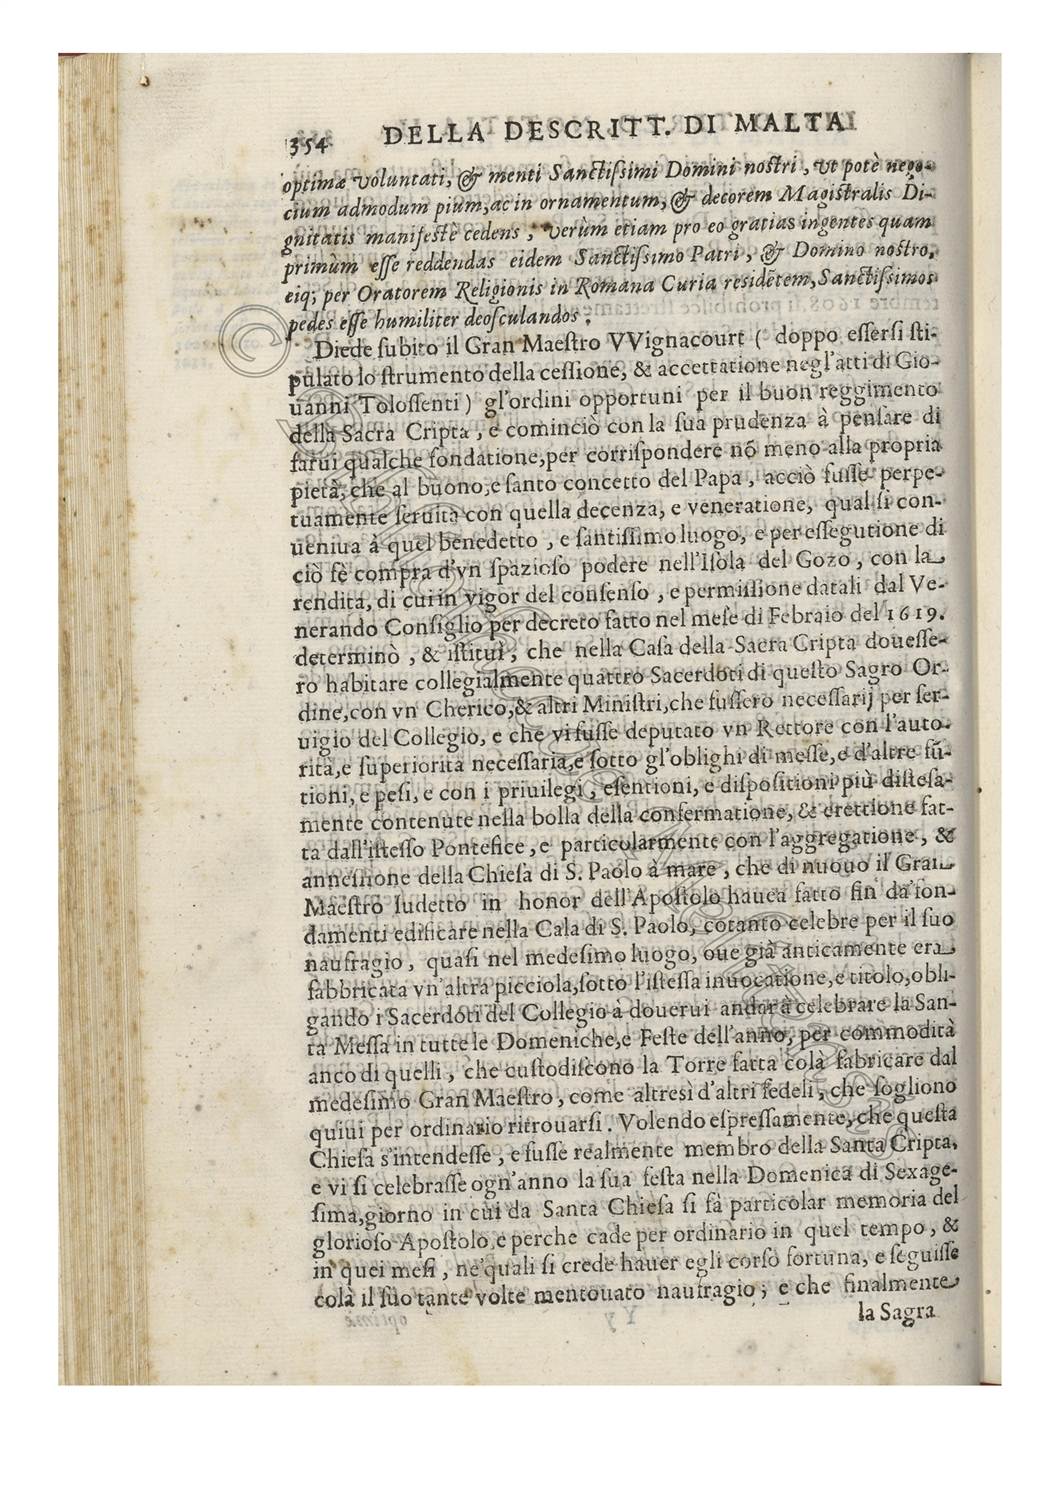 354 DELLA DESCRITT. DI MALTA
optimæ voluntati, & menti Sanctiſsimi Domini noſtri, vt potè nego-
cium admodum pium, ac in ornamentum, & decorem Magiſtralis Di-
gnitatis manifeſtè cedens, verùm etiam pro eo gratias ingentes quam
primùm eſſe reddendas eidem Sanctiſsimo Patri, & Domino noſtro,
eiq; per Oratorem Religionis in Romana Curia reſidẽtem, Sanctiſsimos
pedes eſſe humiliter deoſculandos.
Diede ſubito il Gran Maeſtro VVignacourt ( doppo eſſerſi ſti-
pulato lo ſtrumento della ceſſione, & accettatione negl'atti di Gio-
uanni Toloſſenti) gl'ordini opportuni per il buon reggimento
della Sacra Cripta, e cominciò con la ſua prudenza à penſare di
farui qualche fondatione, per corriſpondere nõ meno alla propria
pietà, che al buono, e ſanto concetto del Papa, acciò fuſſe perpe-
tuamente ſeruita con quella decenza, e veneratione, qual ſi con-
ueniua à quel benedetto, e ſantiſſimo luogo, e per eſſegutione di
ciò fè compra d'vn ſpazioſo podere nell'Iſola del Gozo, con la
rendita, di cui in vigor del conſenſo, e permiſſione datali dal Ve-
nerando Conſiglio per decreto fatto nel meſe di Febraio del 1619.
determinò, & iſtituì, che nella Caſa della Sacra Cripta doueſſe-
ro habitare collegialmente quattro Sacerdoti di queſto Sagro Or-
dine, con vn Cherico, & altri Miniſtri, che fuſſero neceſſarij per ſer-
uigio del Collegio, e che vi fuſſe deputato vn Rettore con l'auto-
rità, e ſuperiorità neceſſaria, e ſotto gl'oblighi di meſſe, e d'altre fũ-
tioni, e peſi, e con i priuilegi, eſentioni, e diſpoſitioni più diſteſa-
mente contenute nella bolla della confermatione, & erettione fat-
ta dall'iſteſſo Pontefice, e particolarmente con l'aggregatione, &
anneſſione della Chieſa di S. Paolo à mare, che di nuouo il Gran
Maeſtro ſudetto in honor dell'Apoſtolo hauea fatto fin da'fon-
damenti edificare nella Cala di S. Paolo, cotanto celebre per il ſuo
naufragio, quaſi nel medeſimo luogo, oue già anticamente era
fabbricata vn'altra picciola, ſotto l'iſteſſa inuocatione, e titolo, obli-
gando i Sacerdoti del Collegio à douerui andar à celebrare la San-
ta Meſſa in tutte le Domeniche, e Feſte dell'anno, per commodità
anco di quelli, che cuſtodiſcono la Torre fatta colà fabricare dal
medeſimo Gran Maeſtro, come altresì d'altri fedeli, che ſogliono
quiui per ordinario ritrouarſi. Volendo eſpreſſamente, che queſta
Chieſa s'intendeſſe, e fuſſe realmente membro della Santa Cripta,
e vi ſi celebraſſe ogn'anno la ſua feſta nella Domenica di Sexage-
ſima, giorno in cui da Santa Chieſa ſi fà particolar memoria del
glorioſo Apoſtolo, e perche cade per ordinario in quel tempo, &
in quei meſi, ne'quali ſi crede hauer egli corſo fortuna, e ſeguiſſe
colà il ſuo tante volte mentouato naufragio; e che finalmente
la Sagra